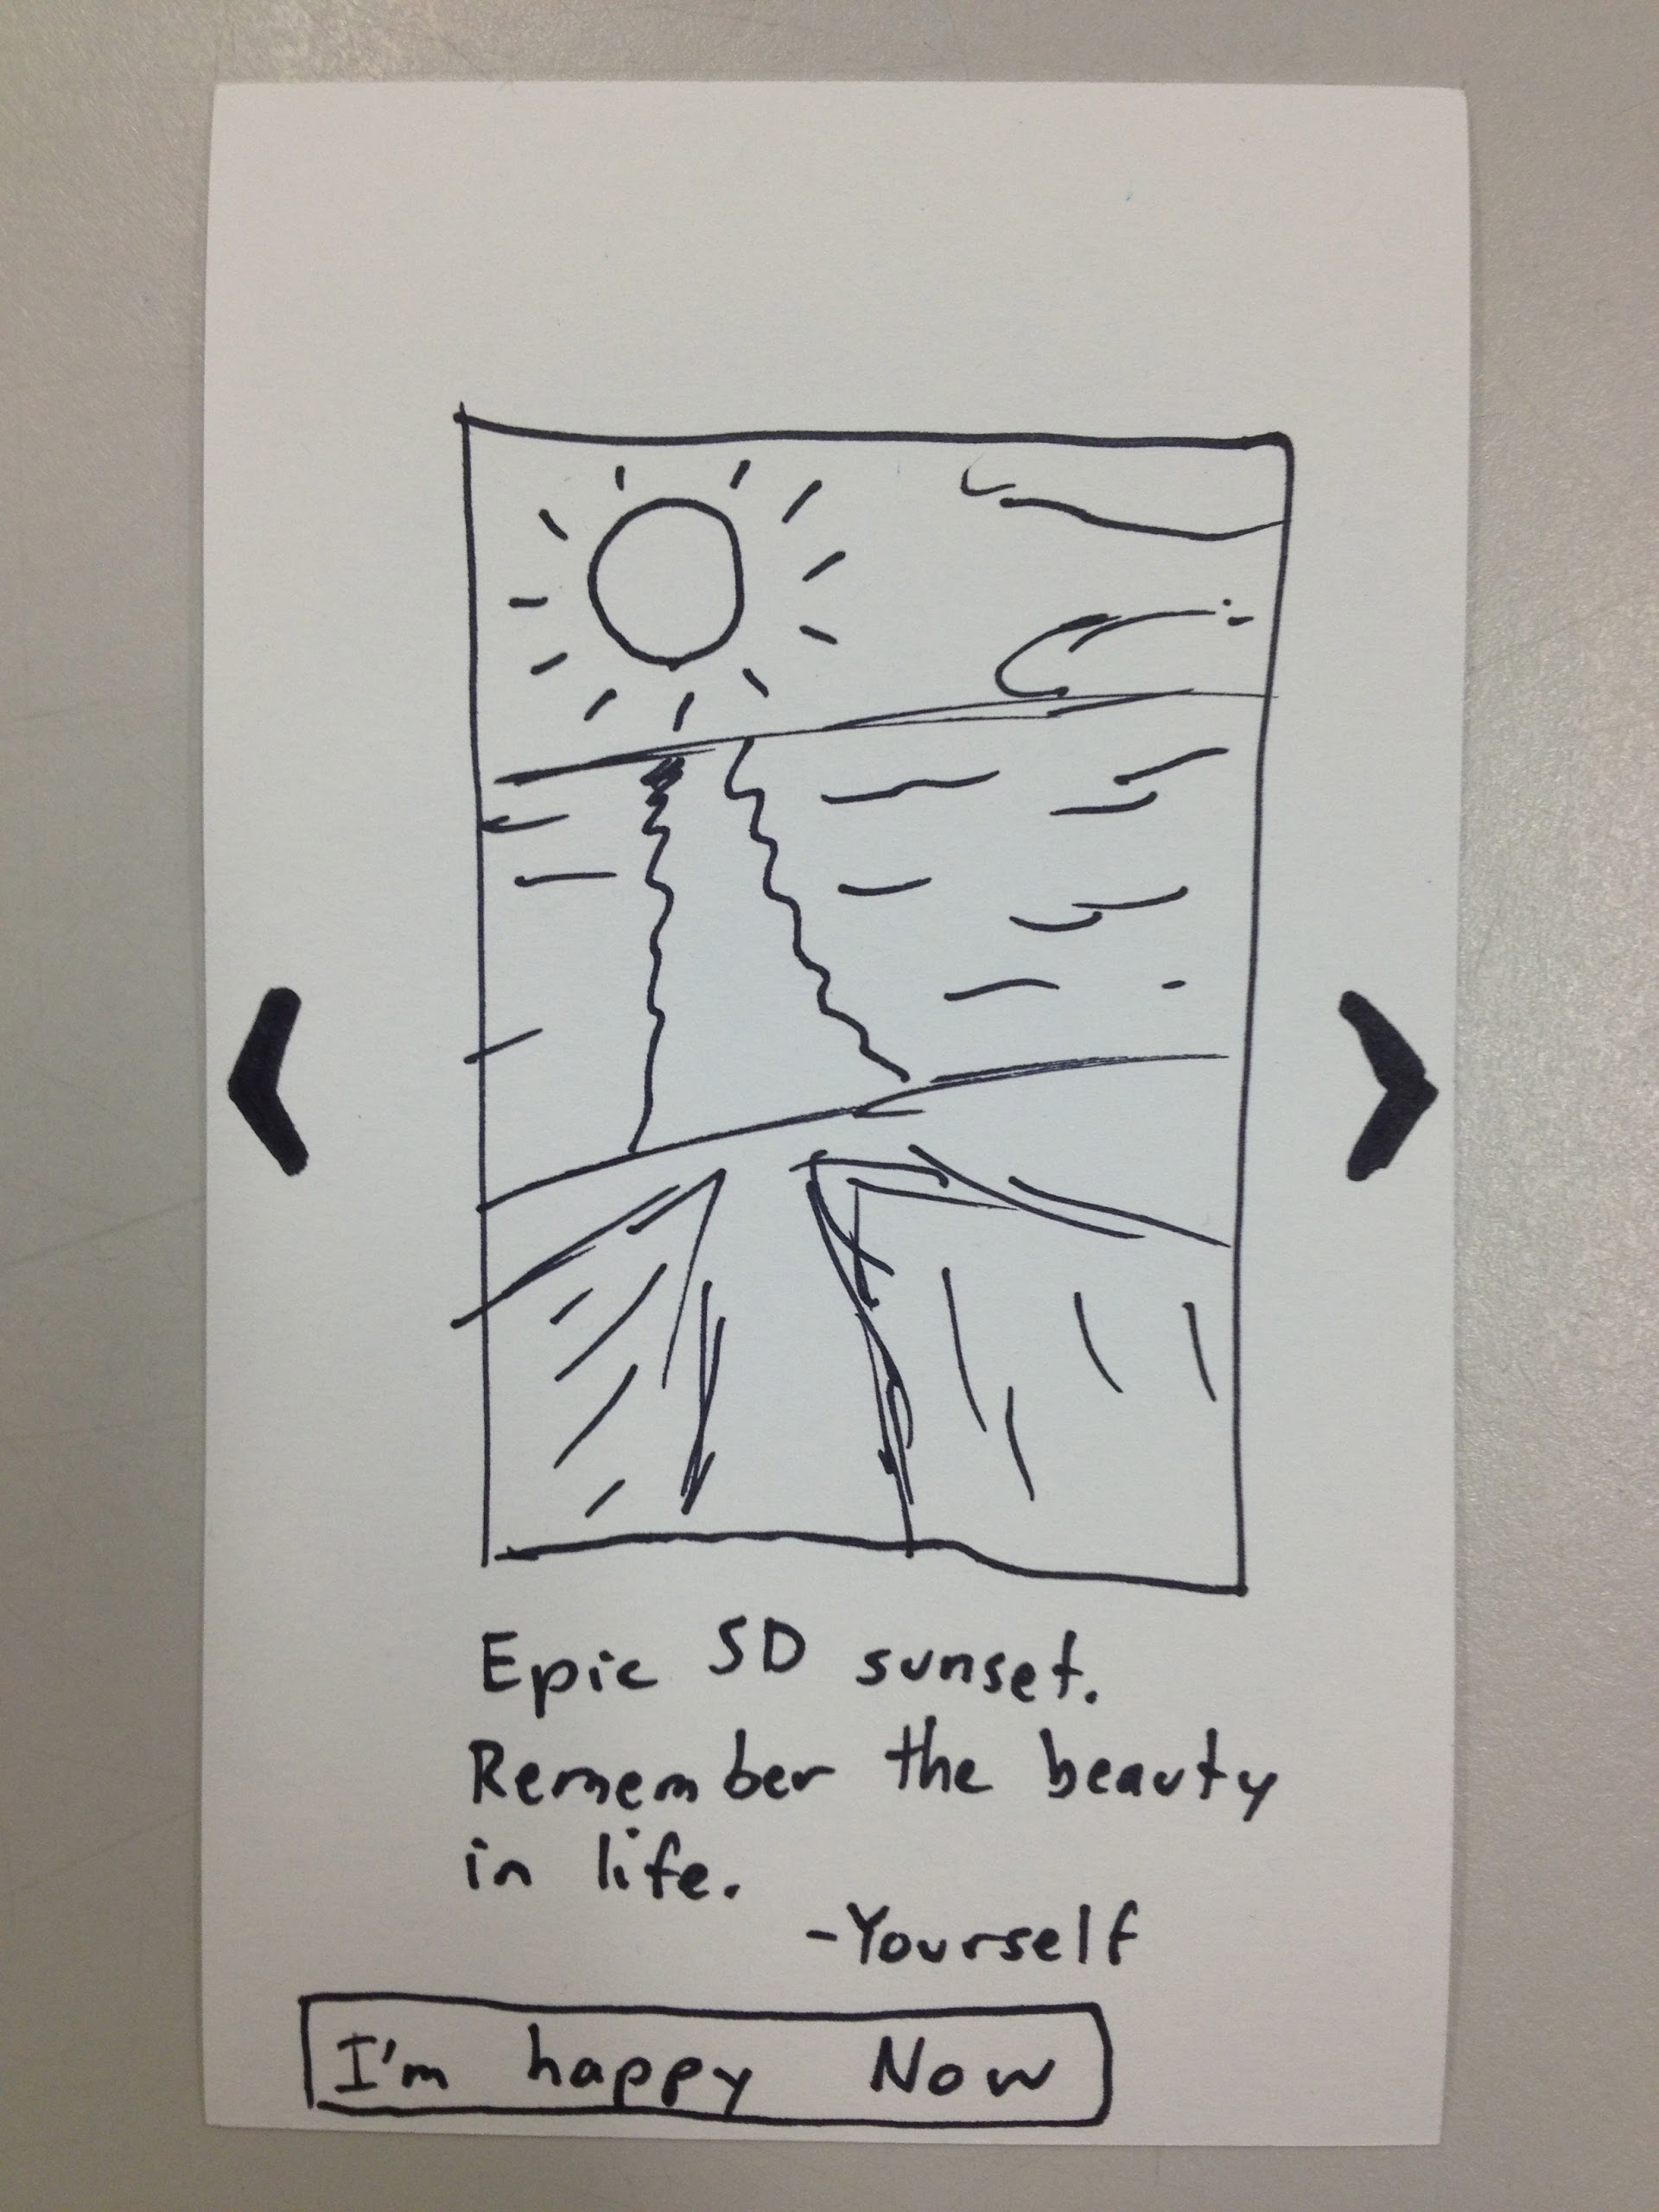 Epic SD sunset.
Remember the beauty
in life.
-Yourself
I'm happy Now